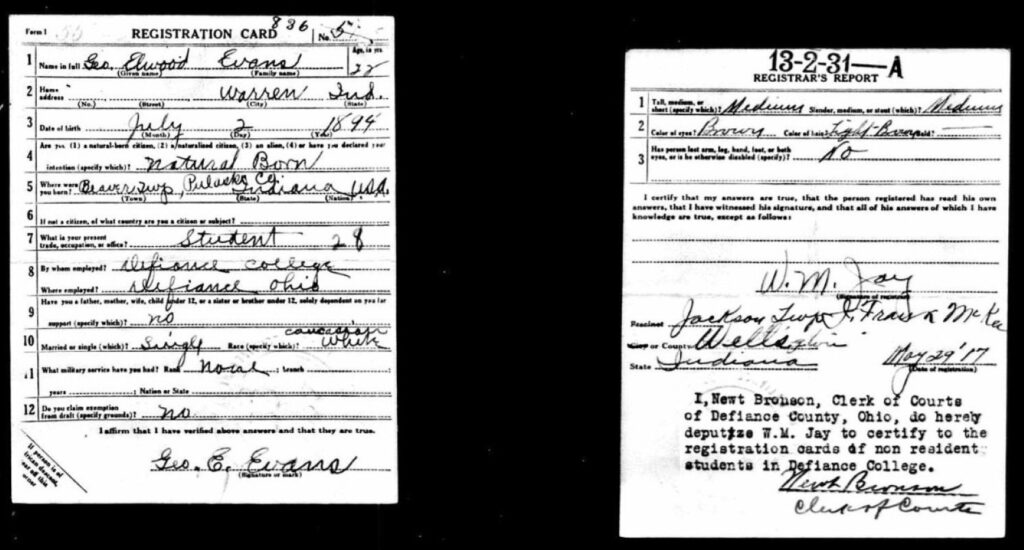 Form 1
REGISTRATION CARD 836 No. 5
Age, in yrs
1 Name in full Geo. Elwood Evans 22
(Given name) (Family name)
2 Home address Warren Ind.
(No.) (Street) (City) (State)
3 Date of birth July 2 1894
(Month) (Day) (Year)
4 Are you (1) a natural-born citizen, (2) a naturalized citizen, (3) an alien, (4) or have you declared your
intention (specify which)? Natural Born
5 Where were you born? Beaver Twp, Pulaski Co. Indiana USA
(Town) (State) (Nation)
6 If not a citizen, of what country are you a citizen or subject?
7 What is your present trade, occupation, or office? Student 28
8 By whom employed? Defiance College
Where employed? Defiance Ohio
9 Have you a father, mother, wife, child under 12, or a sister or brother under 12, solely dependent on you for
support (specify which)? No
10 Married or single (which)? Single Race (specify which)? Caucasian White
11 What military service have you had? Rank ; branch
years ; Nation or State
12 Do you claim exemption from draft (specify grounds)? No
I affirm that I have verified above answers and that they are true.
Geo. E. Evans
(Signature or mark)
If person is of African descent,
13-2-31-A
REGISTRAR'S REPORT
1 Tall, medium, or short (specify which)? Medium Slender, medium, or stout (which)? Medium
2 Color of eyes? Brown Color of hair? Light-Brown Bald? —
3 Has person lost arm, leg, hand, foot, or both
eyes, or is he otherwise disabled (specify)? No
I certify that my answers are true, that the person registered has read his own
answers, that I have witnessed his signature, and that all of his answers of which I have
knowledge are true, except as follows:
W. M. Jay
(Signature of registrar)
Precinct Jackson Twp J. Frank McKee
City or County Wells
State Indiana May 29 '17
(Date of registration)
I, Newt Bronson, Clerk of Courts
of Defiance County, Ohio, do herely
deputize W.M. Jay to certify to the
registration cards of non resident
students in Defiance College.
Newt Bronson
Clerk of Courts